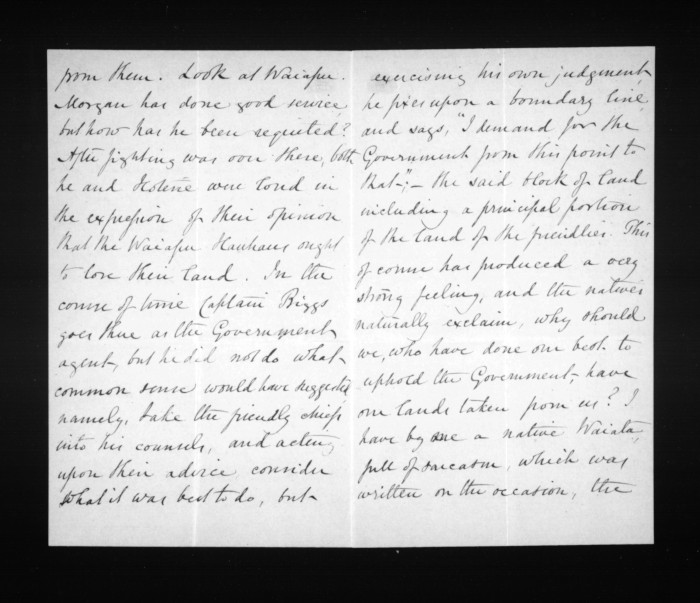 from them. Look at Waiapu.
Morgan has done good service,
but how has he been requited?
After fighting was over there, both
he and Hotene were loud in
the expression of their opinion
that the Waiapu Hauhaus ought
to lose their land. In the
course of time Captain Biggs
goes there as the Government
agent, but he did not do what
common sense would have suggested,
namely, take the friendly chiefs
into his counsels, and acting
upon their advice, consider
what it was best to do, but
exercising his own judgement,
he fixes upon a boundary line,
and says, "I demand for the
Government from this point to
that"; - the said block of land
including a principal portion
of the land of the friendlies. This
of course has produced a very
strong feeling, and the natives
naturally exclaim, why should
we, who have done our best to
uphold the Government, have
our lands taken from us? I
have by me a native Waiata,
full of sarcasm, which was
written on the occasion, the